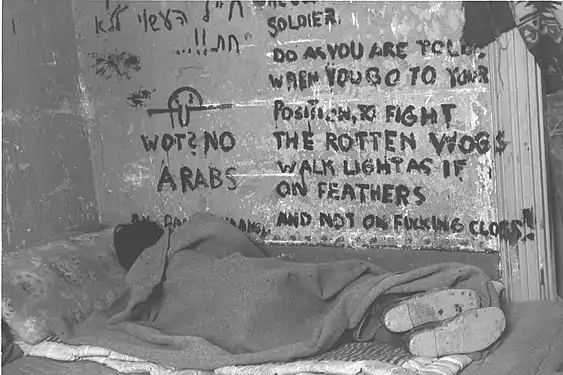 חייל העשוי ללא
חת!!...
SOLDIER.
DO AS YOU ARE TOLD.
WHEN YOU GO TO YOUR
POSITION, TO FIGHT
THE ROTTEN WOGS
WALK LIGHT AS IF
ON FEATHERS
AND NOT ON FUCKING CLOGS!
WOT? NO
ARABS
BY